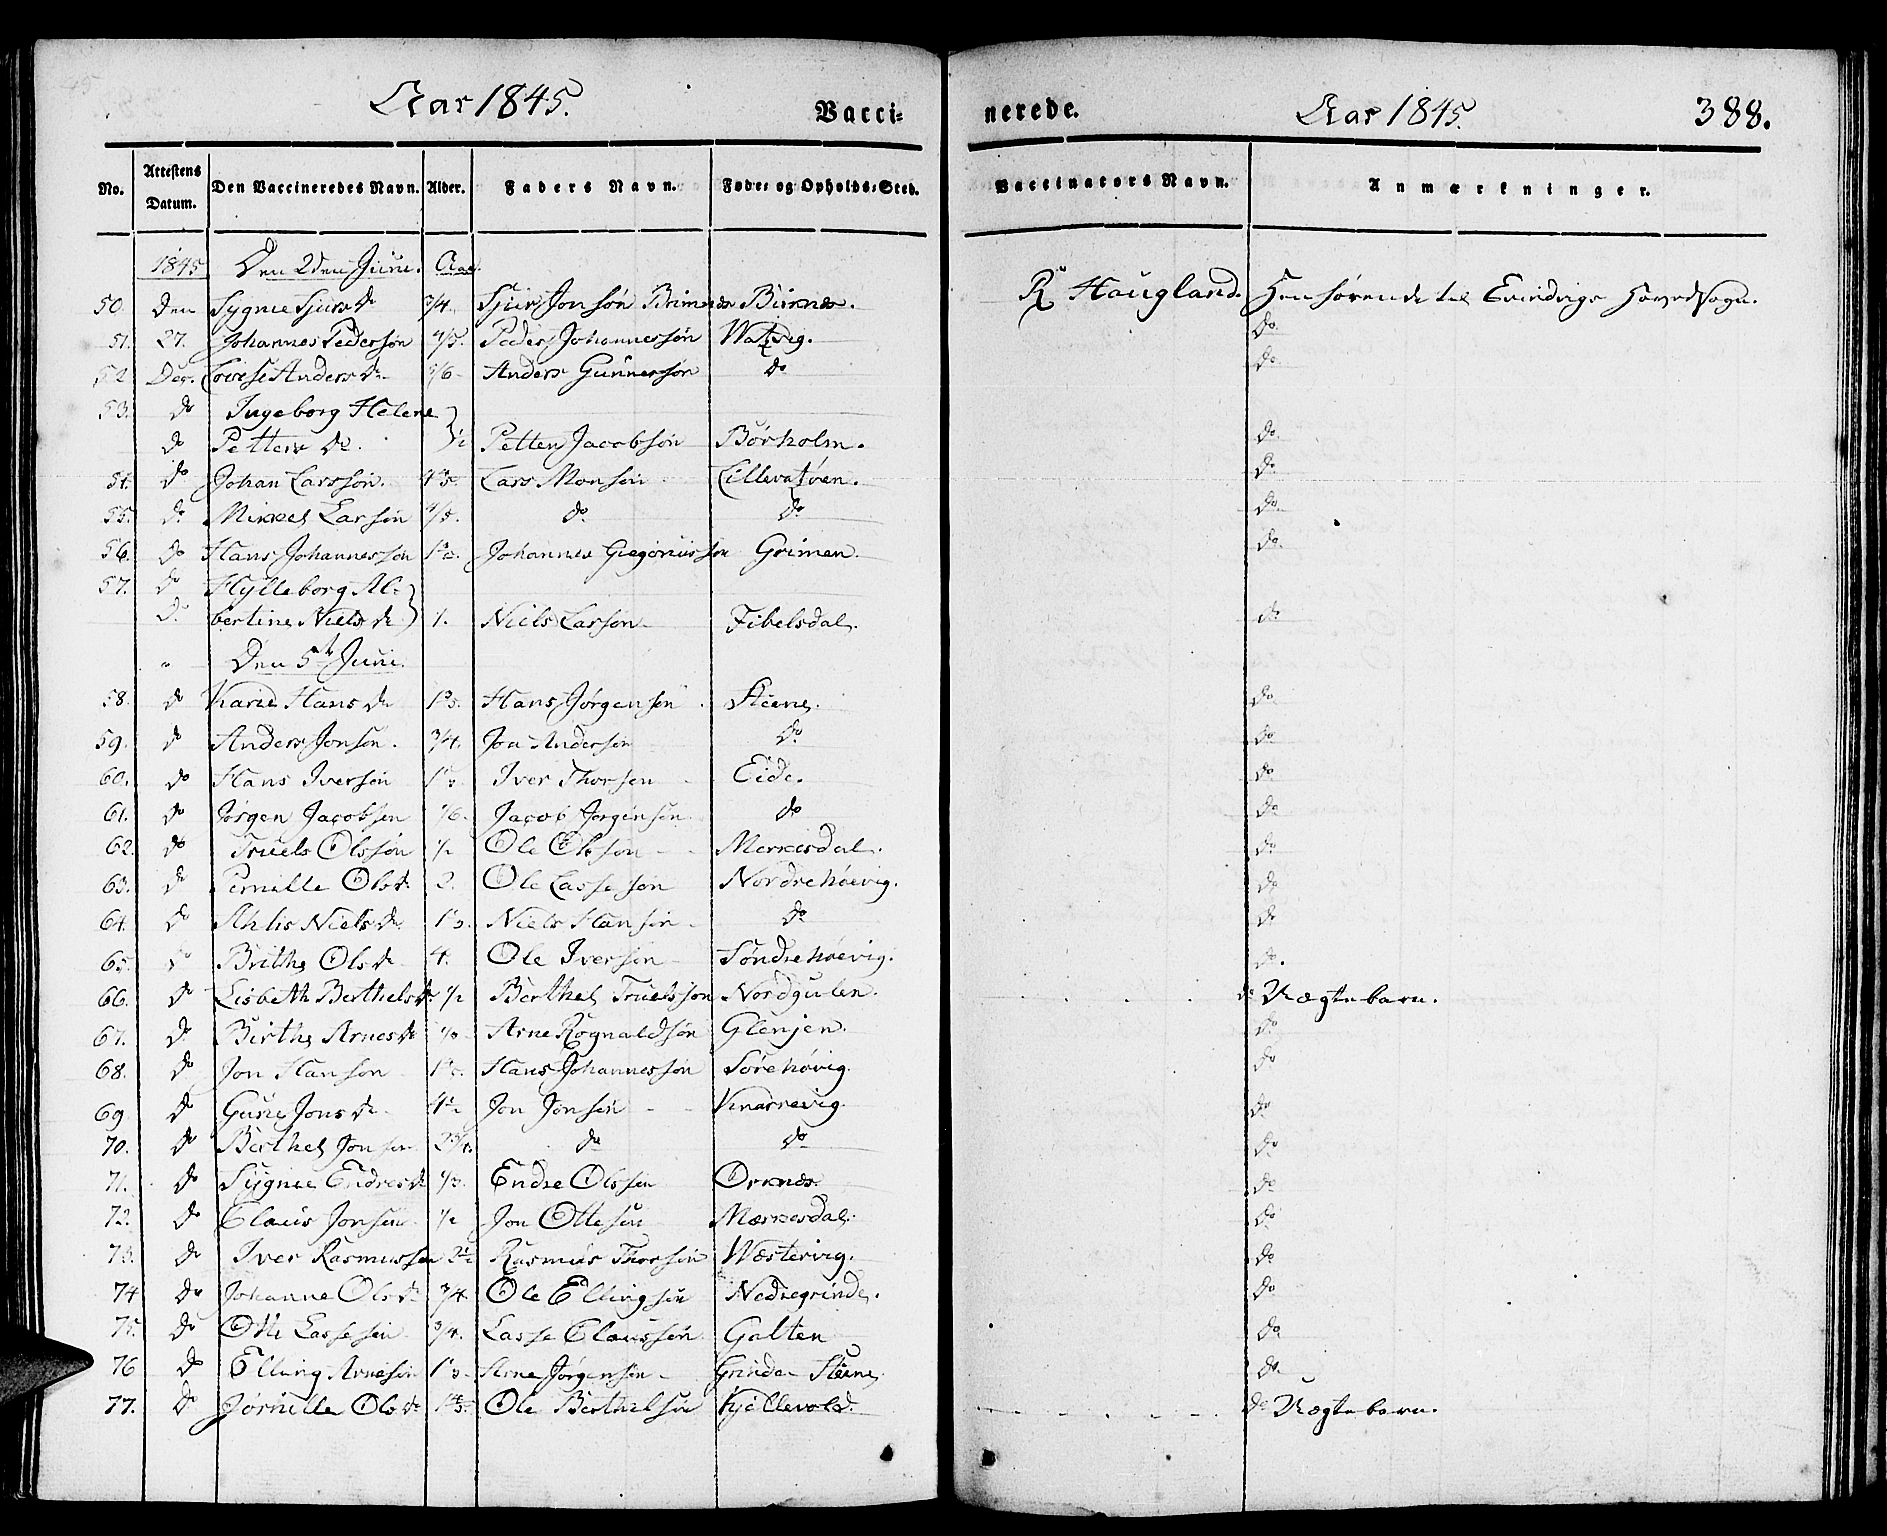 Aar 1845. Vacci-
nerede. Aar 1845. 388.
No. Attestens Datum. Den Vaccineredes Navn. Alder. Faders Navn. Føde- og Opholds-Sted. Vaccinators Navn. Anmærkninger.
1845 Den 2den Juni. Aar.
50. Den Sygnie Sjursd. 3/4. Sjur Jonsøn Brimnes Birnes. R. Haugland. Henhørende til Evindvigs Hovedsogn.
51. 27. Johannes Pedersøn 4/5. Peder Johannesøn Watzvig. do
52 Dec. Lovise Andersd. Anders Gunnersøn do do
53. do Ingeborg Helene
do Petters de. 1/2 Petter Jacobsøn Børholm. do
54. do Johan Larssøn. Lars Monsøn Lillevatøen. do
55. do Mikkel Larsøn 4/5. do do do
56. do Hans Johannessøn Johannes Gregoriussøn Grimen. do
57. do Hylleborg Al-
do bertine Nielsd. 1. Niels Larsøn Fibelsdal. do
Den 5te Juni.
58. do Karie Hansd. Hans Jørgensøn Steene. do
59. do Anders Jonsøn. 3/4. Jon Andersøn do do
60. do Hans Iversøn Iver Thorsen Eide. do
61. do Jørgen Jacobsen 1/6. Jacob Jørgensøn do do
62. do Truels Olssøn 1/2 Ole Olssøn Merkesdal. do
63. do Pernille Olsd. 2. Ole Lassesøn Nordrehøevig. do
64. do Ahlis Nielsd. Niels Hansøn do do
65. do Brithe Olsd. 4. Ole Iversøn Søndrehøevig. do.
66. do Lisbeth Berthelsd. 1/2 Berthel Truelssøn Nordgulen. do Uægte barn.
67. do Birthe Arnesd. Arne Rognaldsøn Glenjen. do
68. do Jon Hansøn Hans Johannessøn Sørehøvig. do
69 do Gurie Jonsd. 4 1/2 Jon Jonsøn Knarrevig. do
70. do Berthel Jonsøn 2 3/4. do do do
71. do Sygnie Endresd. 1/3. Endre Olssøn Ornes. do
72. do Claus Jonsøn 1/2 Jon Ottesøn Mærkesdal. do
73. do Iver Rasmussen 2 1/2 Rasmus Thorsøn Wæstervig. do
74 do Johanne Olsd. 3/4 Ole Ellingsøn Nedregrinde. do
75. do Otte Lassesøn 3/4. Lasse Claussøn Galten do
76 do Elling Arnesøn Arne Jørgensøn Grinde Steene. do
77. do Jørnille Olsd. Ole Berthelsøn Kjellevold. do Uægte barn.